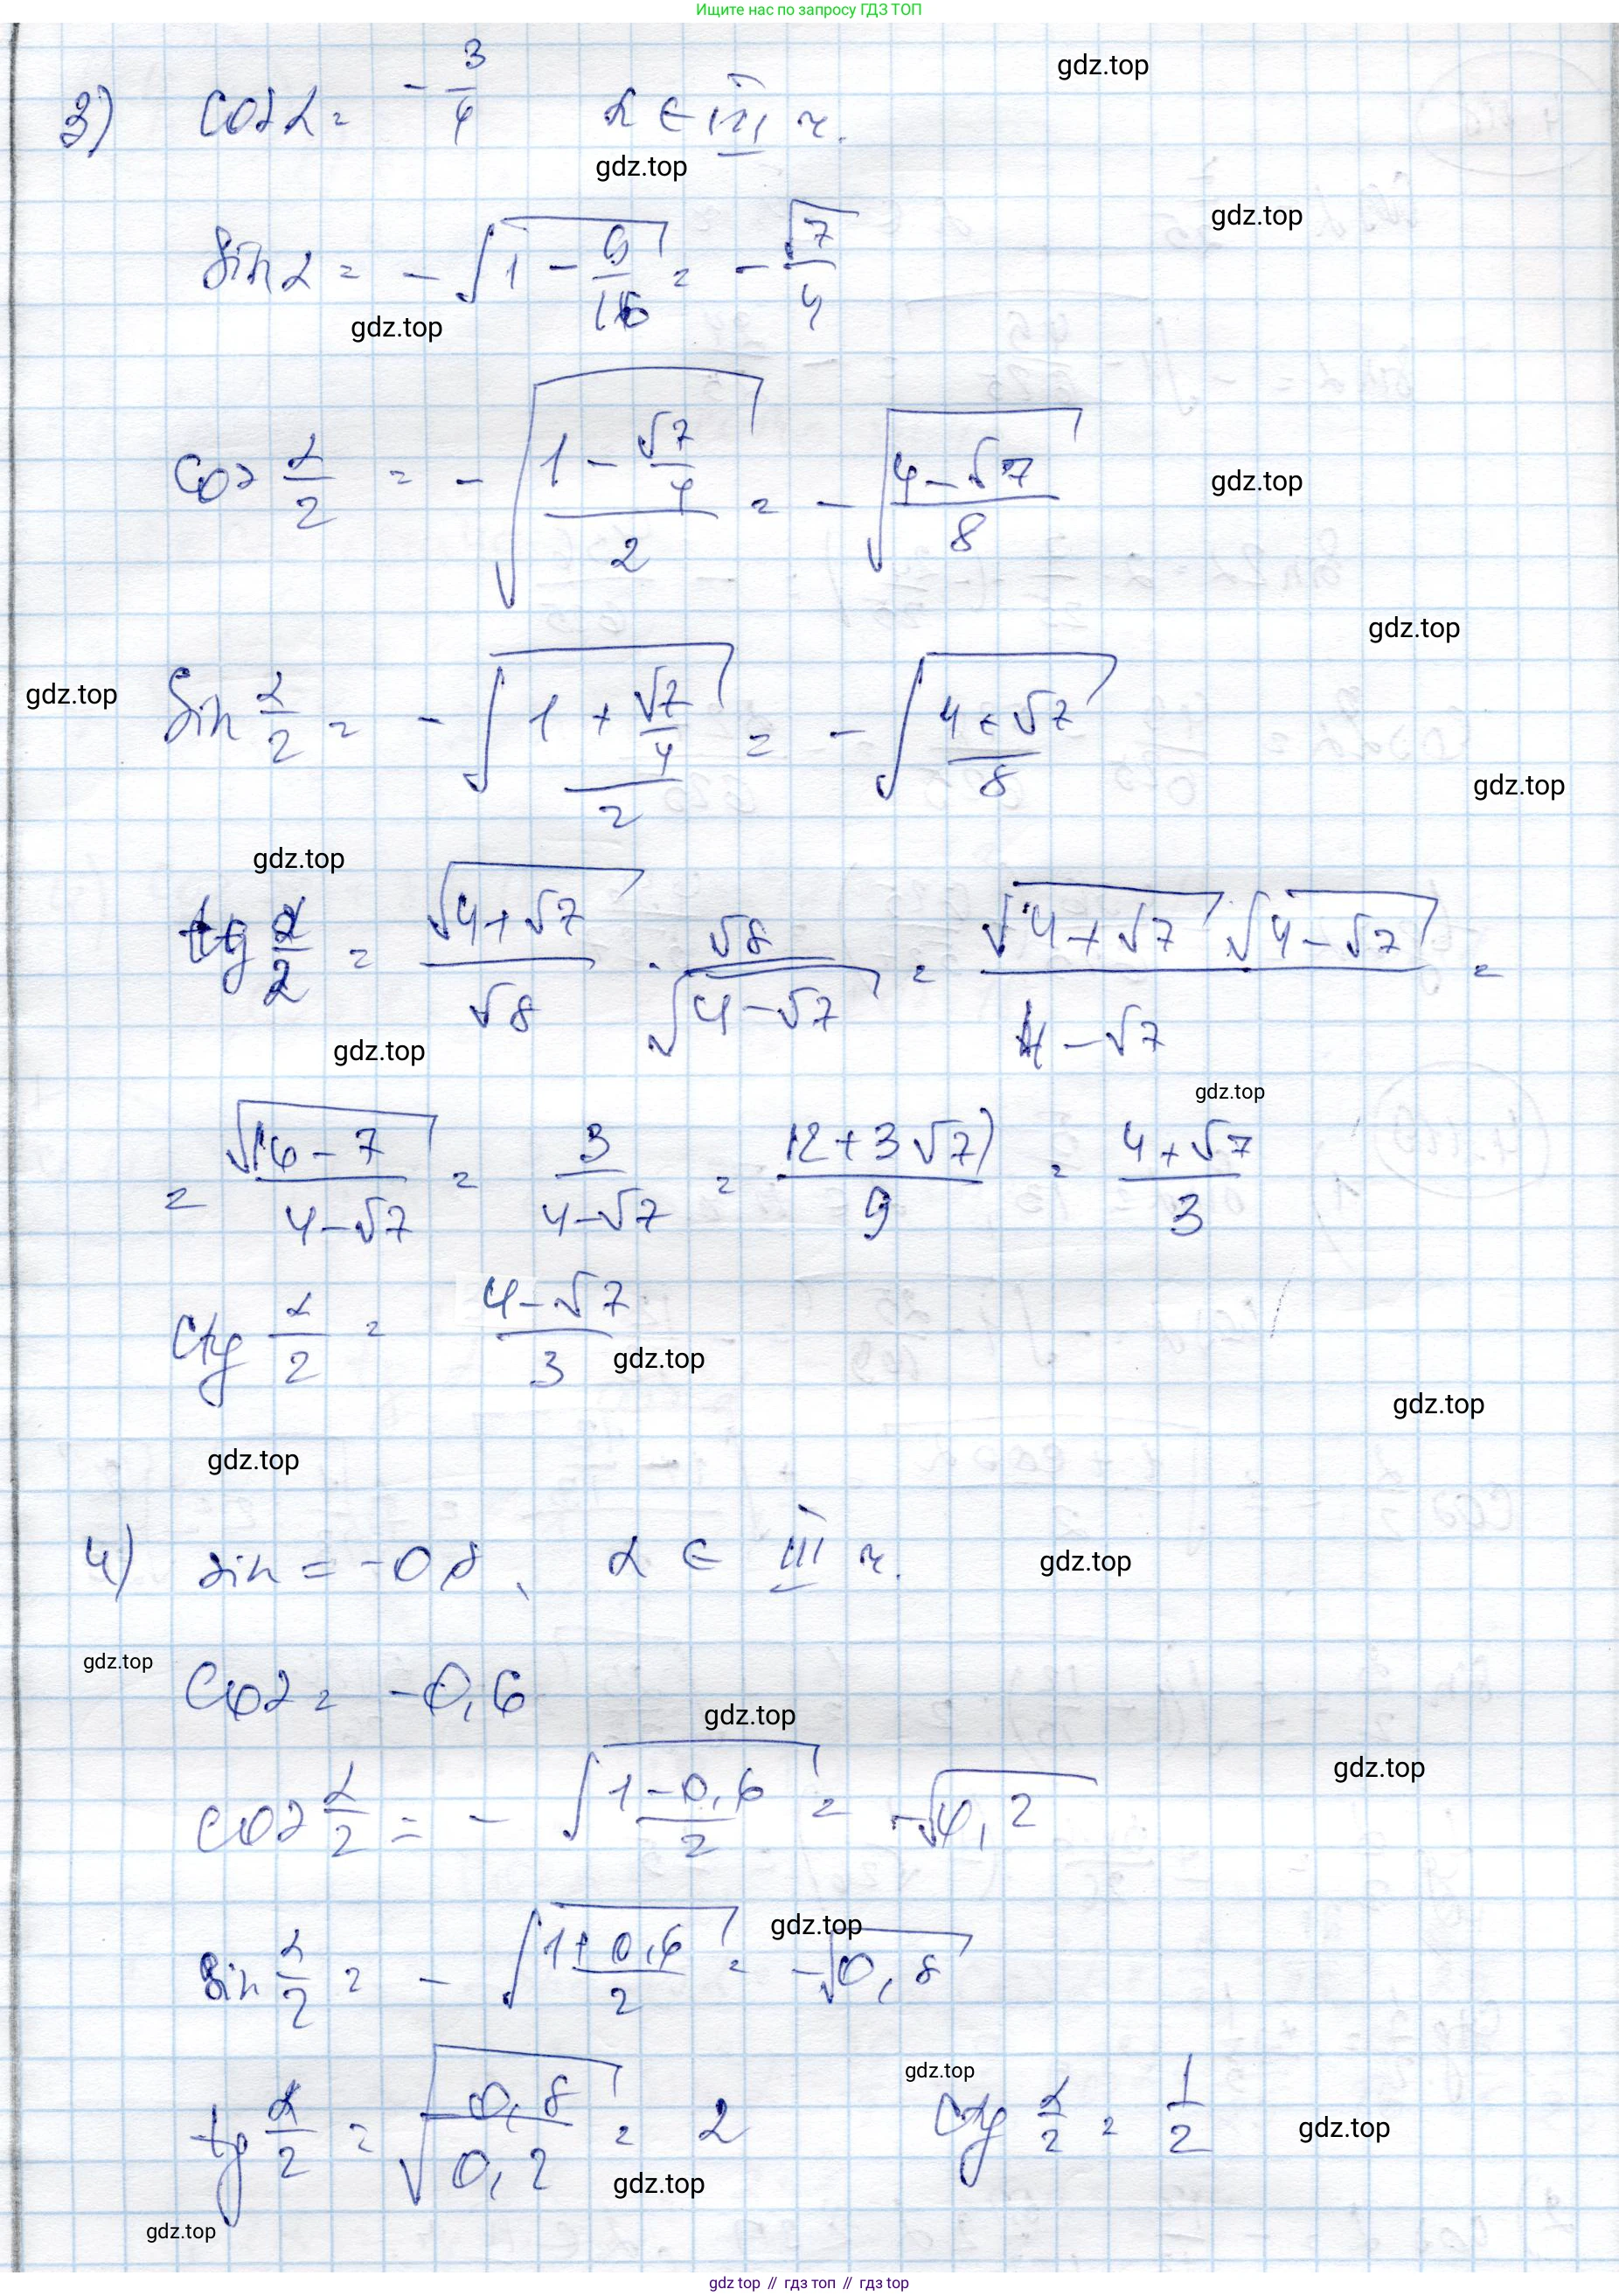 Ищите нас по запросу ГДЗ ТОП
gdz.top
3) cos α = -3/4 α ∈ III ч.
gdz.top
gdz.top
sin α = -√(1 - 9/16) = -√7/4
gdz.top
cos α/2 = -√((1 - √7/4)/2) = -√((4-√7)/8)
gdz.top
gdz.top
gdz.top
sin α/2 = -√((1 + √7/4)/2) = -√((4+√7)/8)
gdz.top
gdz.top
tg α/2 = √(4+√7)/√8 · √8/√(4-√7) = √(4+√7) √(4-√7)/(4-√7) =
gdz.top
gdz.top
= √(16-7)/(4-√7) = 3/(4-√7) = (12+3√7)/9 = (4+√7)/3
ctg α/2 = (4-√7)/3
gdz.top
gdz.top
gdz.top
4) sin = -0,8, α ∈ III ч.
gdz.top
gdz.top
cos α = -0,6
gdz.top
gdz.top
cos α/2 = -√((1-0,6)/2) = -√0,2
gdz.top
sin α/2 = -√((1+0,6)/2) = -√0,8
gdz.top
tg α/2 = √(0,8/0,2) = 2 ctg α/2 = 1/2
gdz.top
gdz.top
gdz.top
gdz top // гдз топ // гдз top